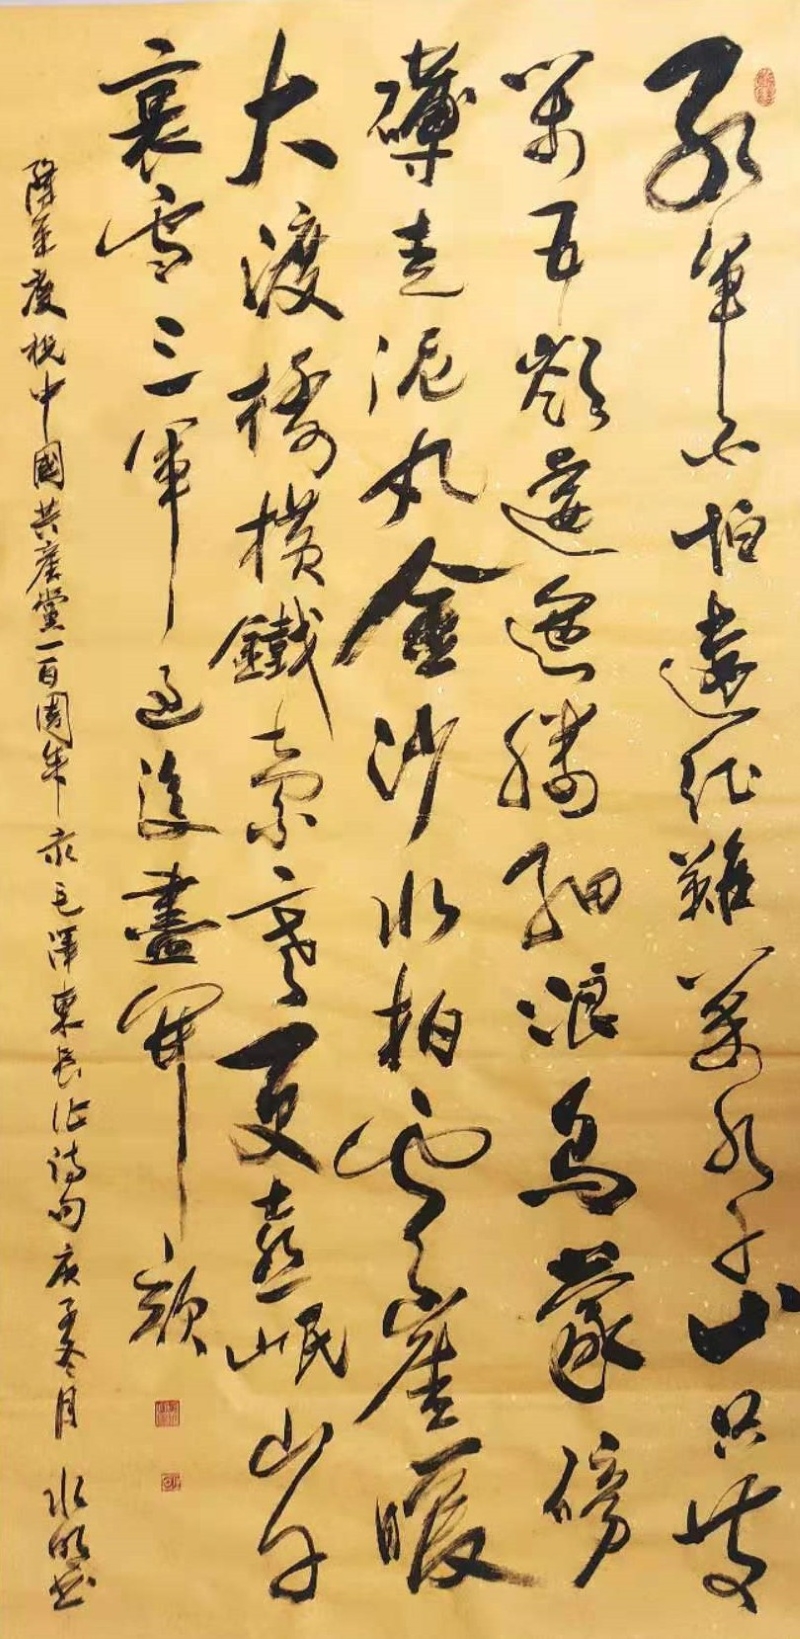 紅軍不怕遠征難萬水千山只等
閒五嶺逶迤騰細浪烏蒙磅
礴走泥丸金沙水拍雲崖暖
大渡橋橫鐵索寒更喜岷山千
裏雪三軍過後盡開顏
隆重慶祝中國共產黨一百周年录毛澤東長征詩句庚子冬月 水明书